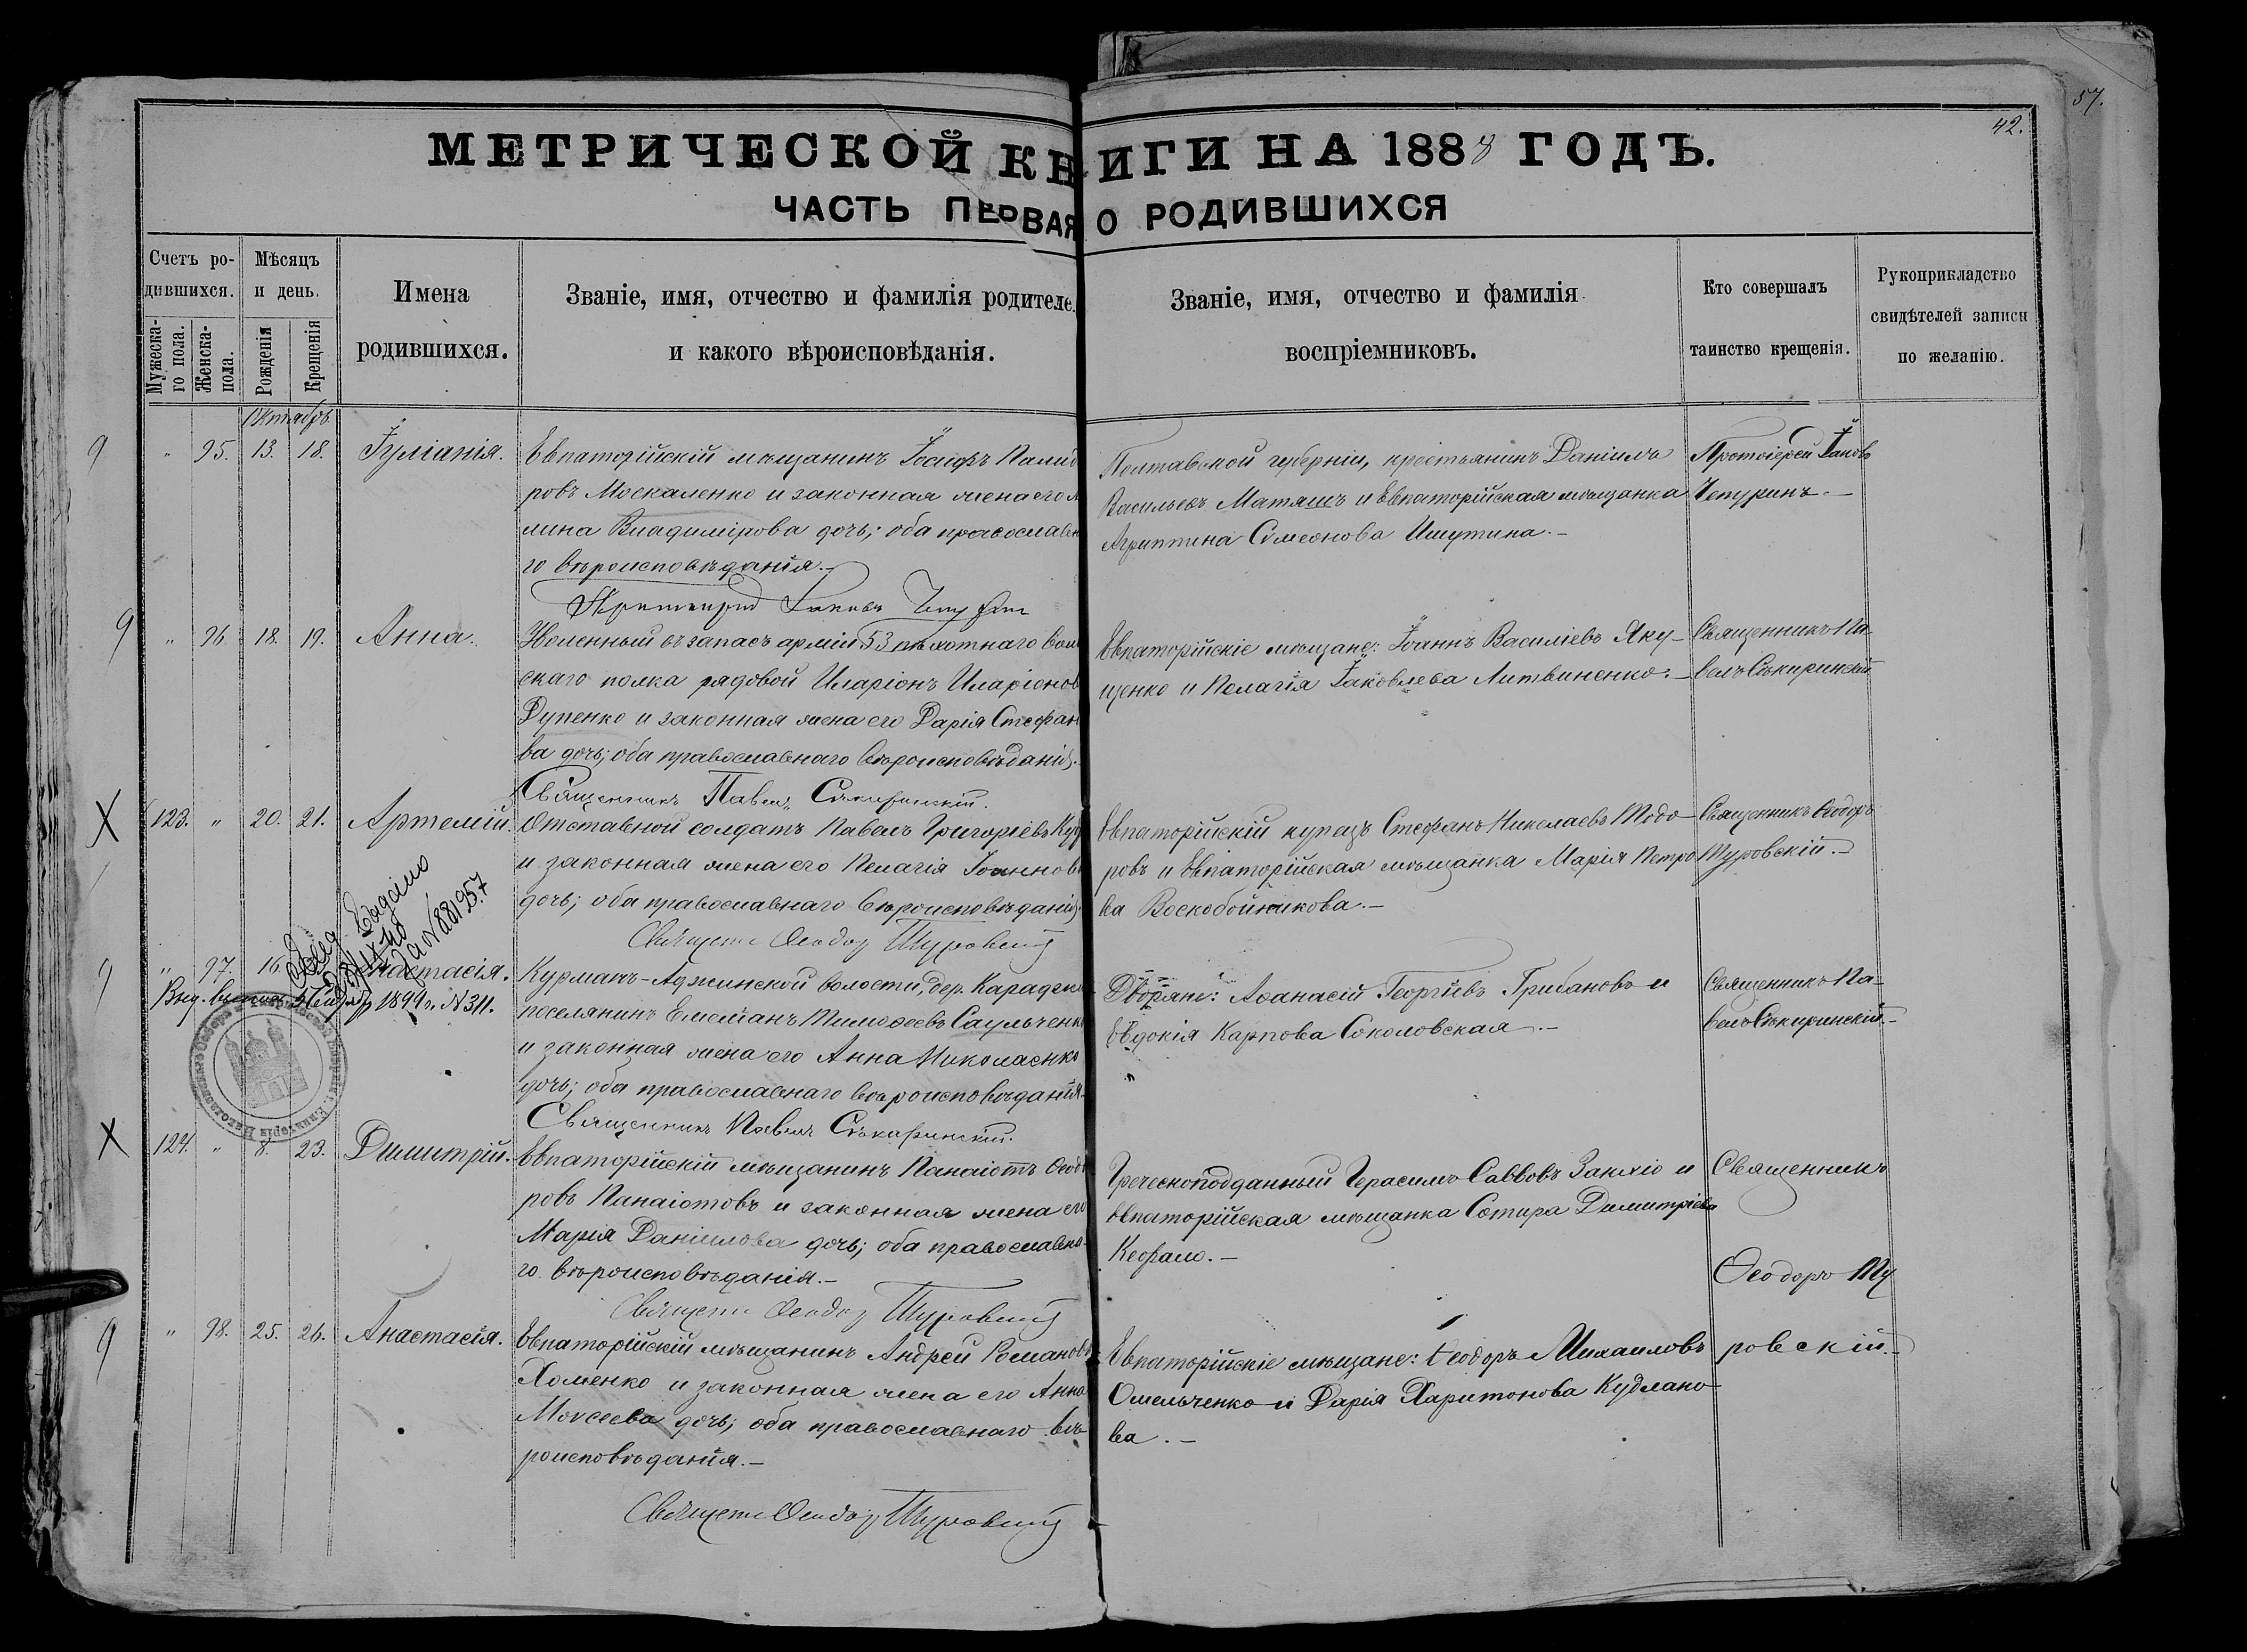 57.
42.
МЕТРИЧЕСКОЙ КНИГИ НА 1888 ГОДЪ.
ЧАСТЬ ПЕРВАЯ О РОДИВШИХСЯ
Счетъ ро-
дившихся.
Мужеска-
го пола.
Женска-
пола.
Мѣсяцъ
и день.
Рожденія
Крещенія
Имена
родившихся.
Званіе, имя, отчество и фамилія родителе
и какого вѣроисповѣданія.
Званіе, имя, отчество и фамилія
воспріемниковъ.
Кто совершалъ
таинство крещенія.
Рукоприкладство
свидѣтелей записи
по желанію.
Октябрь
9 " 95. 13. 18. Іуліанія.
Евпаторійскій мѣщанинъ Іосифъ
ровъ Москаленко и законная жена его
лина Владимірова дочь; оба православн
го вѣроисповѣданія.-
Протоіерей Іаковъ Чепурин
Полтавской губерніи, крестьянинъ Даніилъ
Васильевъ Матяшъ и Евпаторійская мѣщанка
Агриппина Симеонова Ишутина.-
Протоіерей Іаковъ
Чепуринъ.-
9 " 96. 18. 19. Анна.
Уволенный въ запасъ арміи 53 пѣхотнаго Волы
скаго полка рядовой Иларіонъ Иларіонов
Дупенко и законная жена его Дарія Стефан
ва дочь; оба православнаго вѣроисповѣданія.
Священникъ Павелъ Сѣкиринскій.
Евпаторійскіе мѣщане: Іоаннъ Василіевъ Яку-
щенко и Пелагія Іаковлева Литвиненко.-
Священникъ Па-
велъ Сѣкиринскій
X 123. " 20. 21. Артемій.
Отставной солдатъ Павелъ Григоріевъ
и законная жена его Пелагія Іоаннов
дочь; оба православнаго вѣроисповѣданія.
Священ Ѳеодор Туровскій
Евпаторійскій купецъ Стефанъ Николаевъ Тодо-
ровъ и Евпаторійская мѣщанка Марія Петро
ва Воскобойникова.-
Священникъ Ѳеодоръ
Туровскій.-
9 " 97. 16. Анастасія.
Выд. 1899 г. N 311.
Курманъ-Аджинской волости, дер.
поселянинъ Емеліанъ Тимоѳеевъ Саульченк
и законная жена его Анна Николаенко
дочь; оба православнаго вѣроисповѣданія.
Священникъ Павелъ Сѣкиринскій.
Дворяне: Аѳанасій Георгіевъ Грибановъ и
Евдокія Карпова Соколовская.-
Священникъ Па-
велъ Сѣкиринскій.-
X 124. " 8. 23. Димитрій.
Евпаторійскій мѣщанинъ Панаіотъ Ѳеодо
ровъ Панаіотовъ и законная жена его
Марія Даніилова дочь; оба православна-
го вѣроисповѣданія.-
Священ Ѳеодор Туровскій
Греческоподданный Герасимъ Саввовъ и
Евпаторійская мѣщанка Сотира Димитріева
Кефало.-
Священникъ
Ѳеодоръ Ту
9 " 98. 25. 26. Анастасія.
Евпаторійскій мѣщанинъ Андрей Романовъ
Хоменко и законная жена его Анна
Моисеева дочь; оба православнаго вѣ-
роисповѣданія.-
Священ Ѳеодор Туровскій
Евпаторійскіе мѣщане: Ѳеодоръ Михаиловъ
Омельченко и Дарія Харитонова Кудлано-
ва.-
ровскій.-